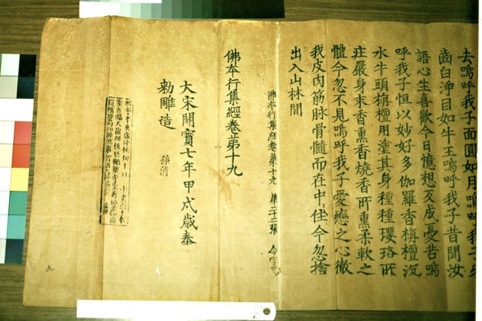 去嗚呼我子面圓如月嗚呼我子
齒白淨目如牛王嗚呼我子昔聞汝
語心生喜歡今日憶想反成憂苦嗚
呼我子恒以妙好多伽羅香栴檀沉
水牛頭栴檀用塗其身種種瓔珞所
莊嚴身末香熏香燒香所熏柔軟之
體今忽不見嗚呼我子愛戀之心徹
我皮肉筋脉骨髓而在中住今忽捨
出入山林間
佛本行集經卷第十九 第二十二張 令
佛本行集經卷第十九
大宋開寶七年甲戌歲奉
勅雕造 孫清